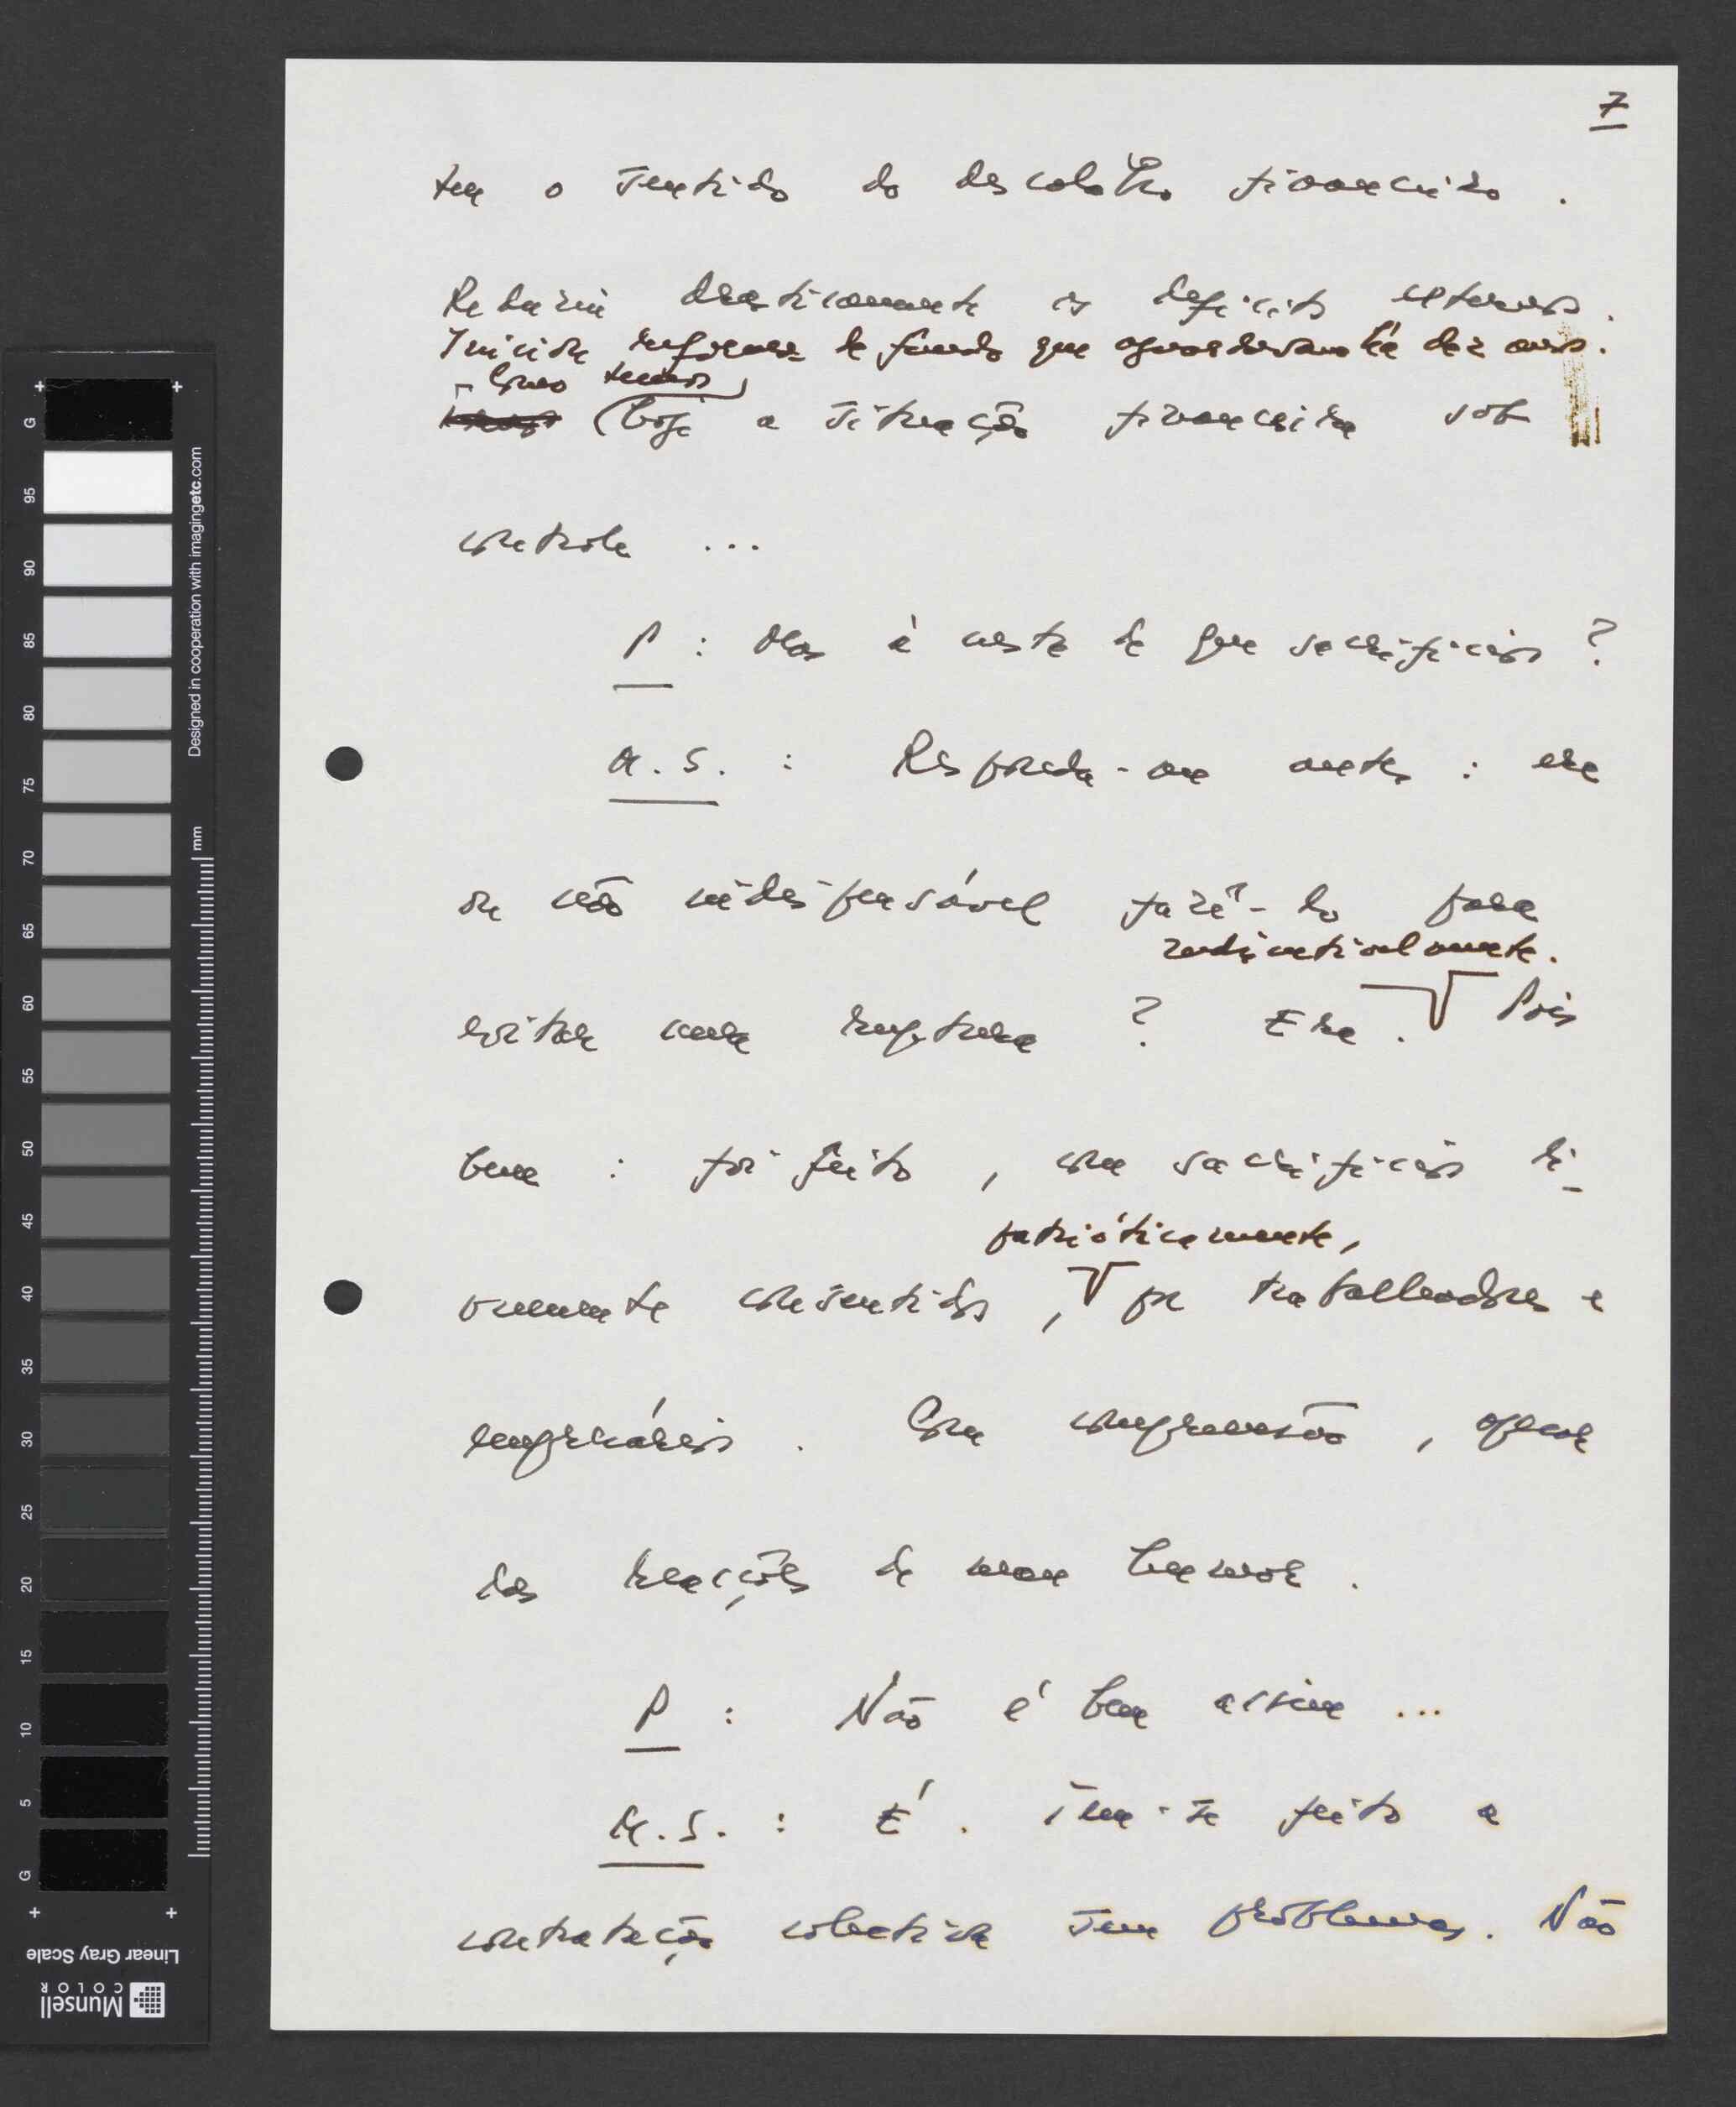 7
tem o sentido do descalabro financeiro.
Reduziu drasticamente os deficits externos.
Iniciou reformas de fundo que aguardavam há dez anos.
Como temos
hoje a situação financeira sob
controle ...
P : Mas à custa de que sacrifícios ?
M.S. : Responda-me antes : era
ou não indispensável fazê-lo para
indiscutivelmente.
evitar uma ruptura ? Era. Pois
bem : foi feito, com sacrifícios li-
patrióticamente,
vremente consentidos, por trabalhadores e
empresários. Com compreensão, apesar
das reacções de mau humor.
P : Não é bem assim ...
M.S. : É. Tem-se feito a
contratação colectiva sem problemas. Não
G 95 90 85 80 75 70 65 60 55 50 45 40 35 30 25 20 15 10 5 G
Designed in cooperation with imagingetc.com
mm
Linear Gray Scale
Munsell
COLOR